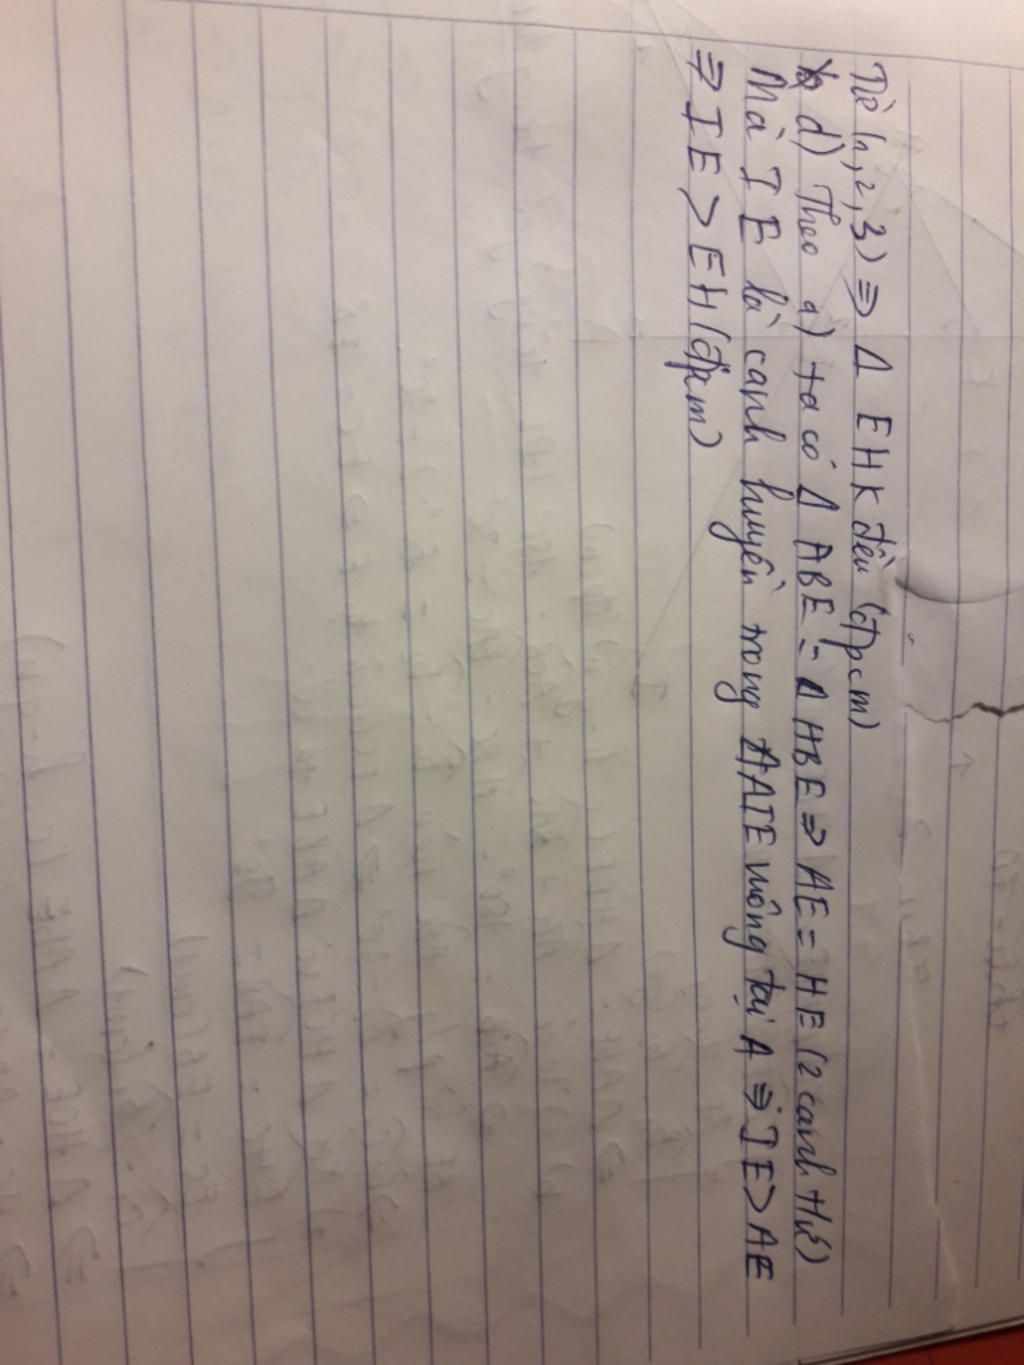 Từ (1,2,3) ⇒ Δ EHK đều (đpcm)
d) Theo a) ta có Δ ABE = Δ HBE ⇒ AE = HE (2 cạnh t/ứ)
Mà IE là cạnh huyền trong ΔAIE vuông tại A ⇒ IE > AE
⇒ IE > EH (đpcm)